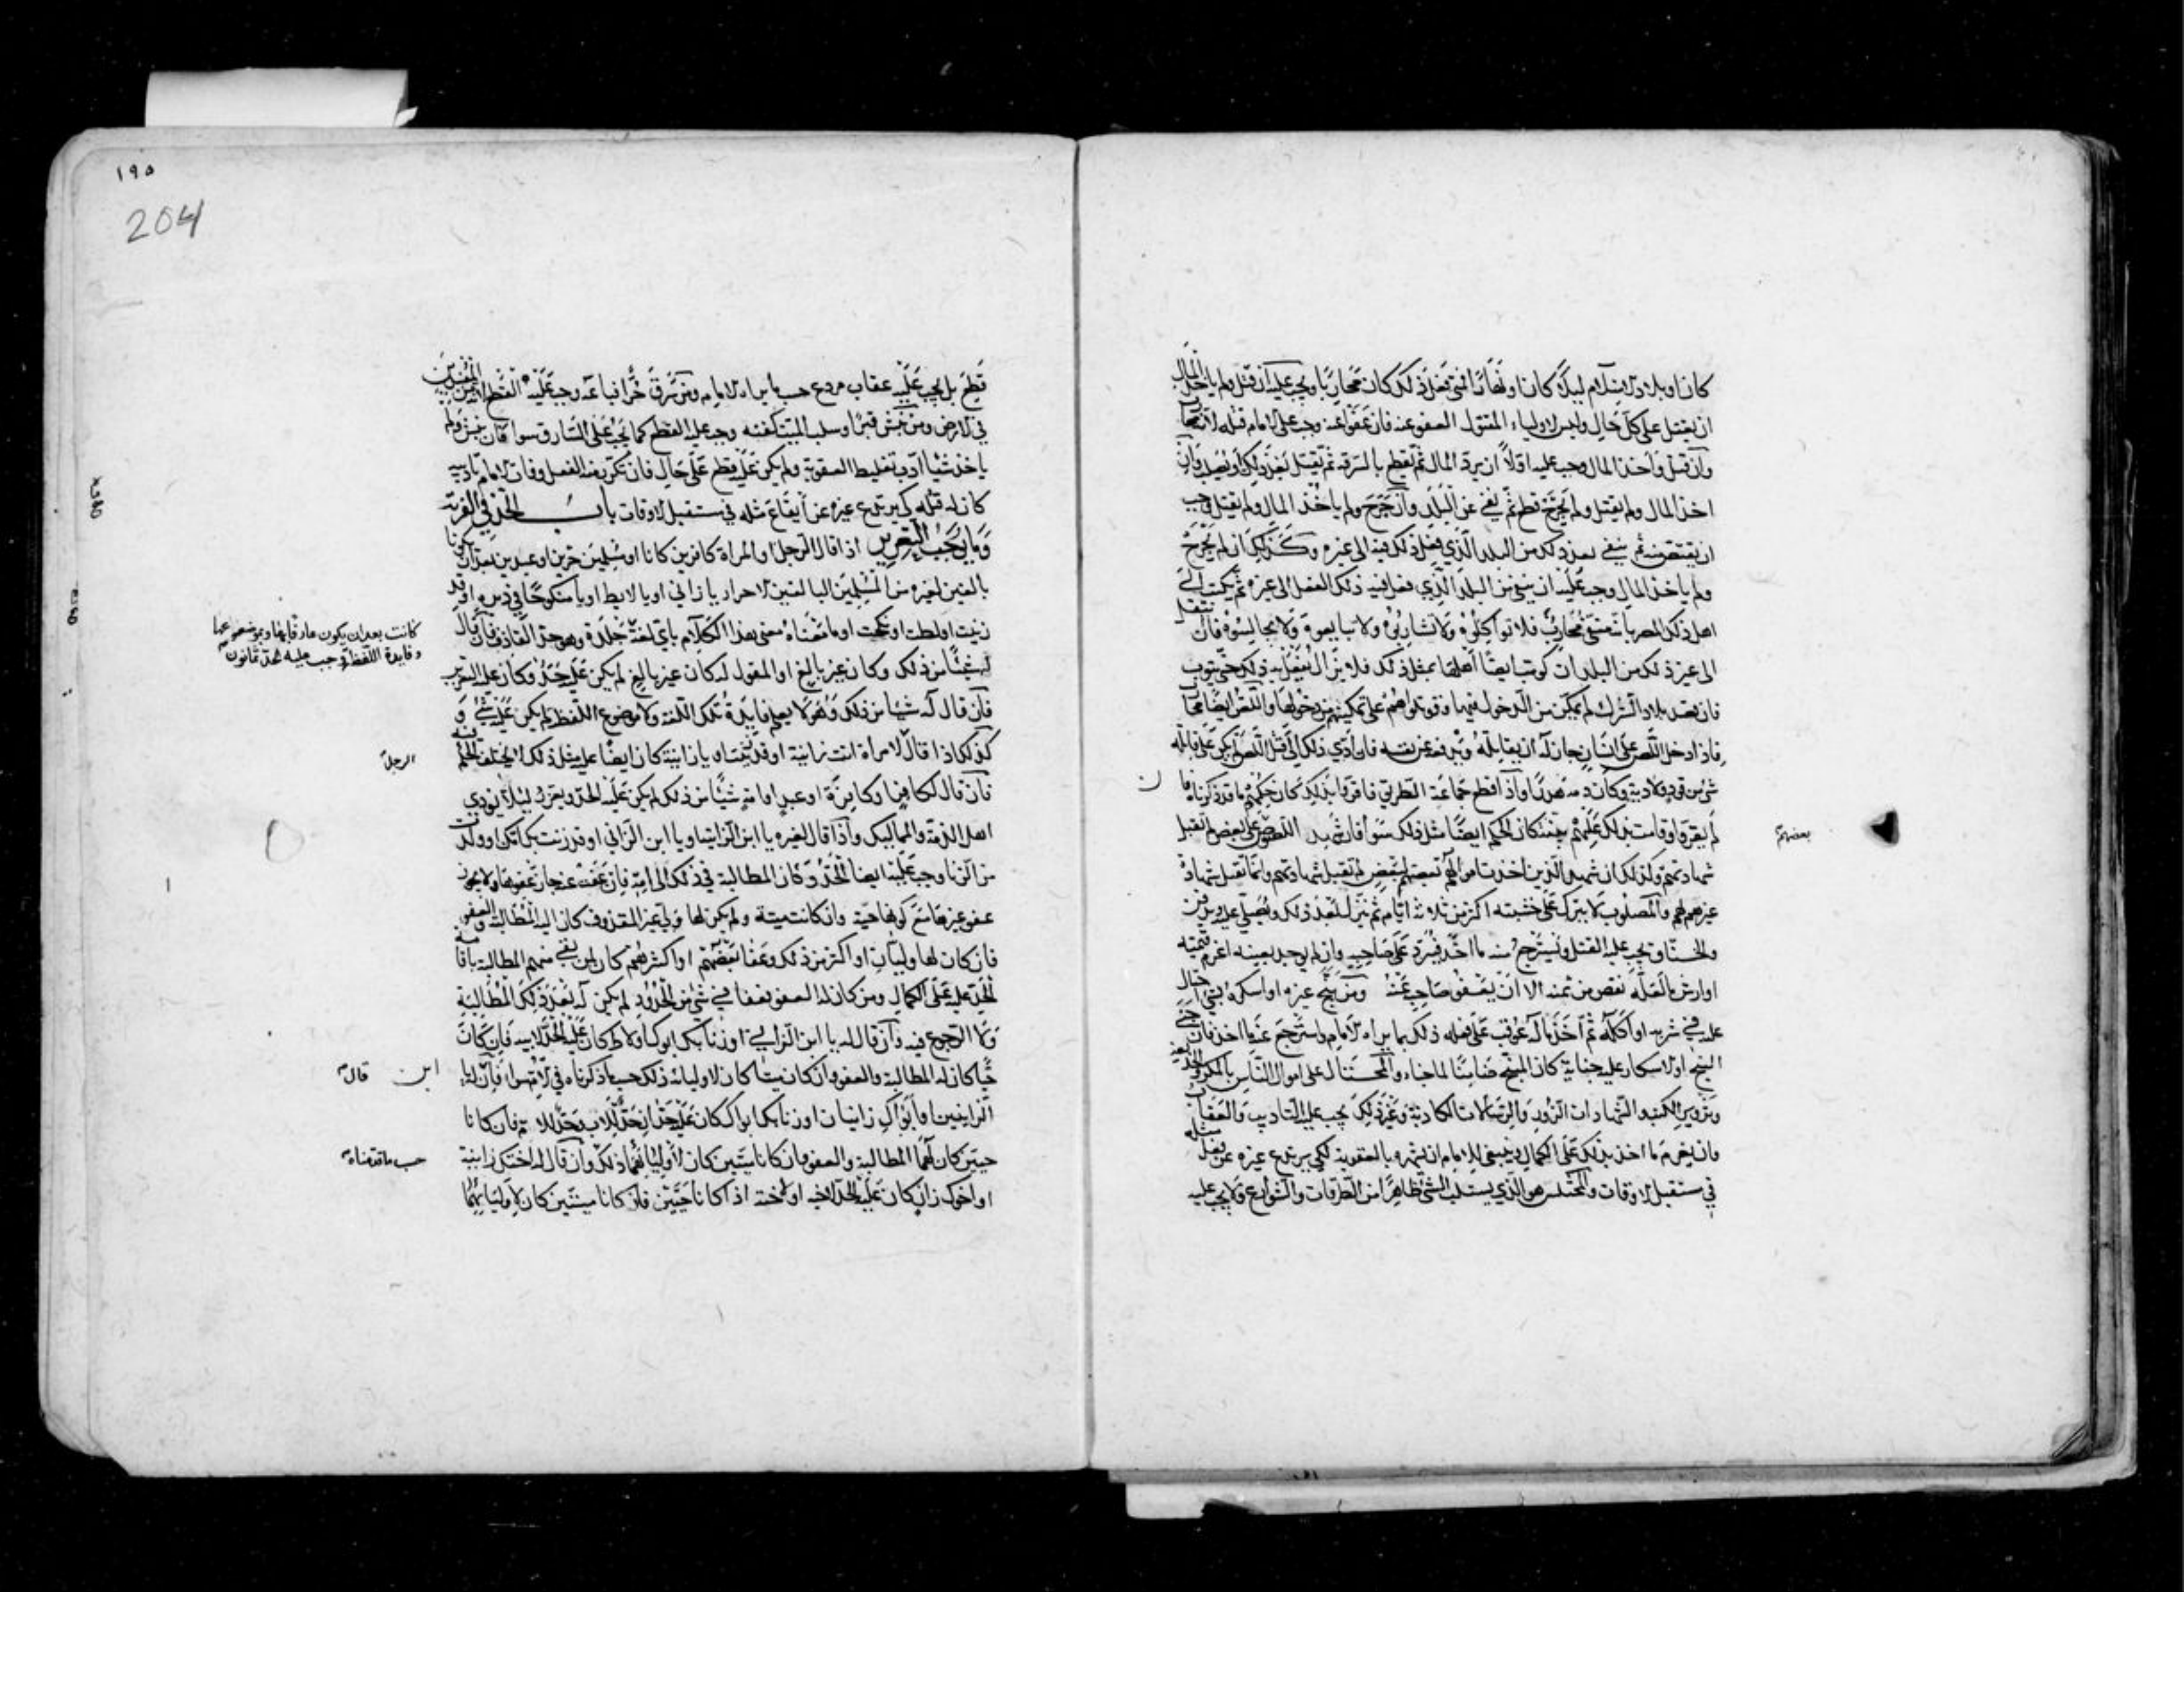 كان او بلاد الاسلام ليلا كان او نهارا فمتى فعل ذلك كان محاربا ويجب عليه ان قتل ولم ياخذ المال
ان يقتل على كل حال وليس لاولياء المقتول العفو عنه فان عفوا عنه وجب على الامام قتله لانه محارب
وان قتل واخذ المال وجب عليه اولا ان يرد المال ثم يقطع بالسرقة ثم يقتل بعد ذلك ويصلب وان
اخذ المال ولم يقتل ولم يجرح قطع ثم نفي عن البلد وان جرح ولم ياخذ المال ولم يقتل وجب
ان يقتص منه ثم ينفى بعد ذلك من البلد الذي فعل ذلك فيه الى غيره وكذلك ان لم يجرح
ولم ياخذ المال وجب عليه ان ينفى من البلد الذي فعل فيه ذلك الفعل الى غيره ثم يكتب الى
اهل ذلك المصر بانه منفي محارب فلا تواكلوه ولا تشاربوه ولا تبايعوه ولا تجالسوه فان انتقل
الى غير ذلك من البلدان كوتب ايضا اهلها بمثل ذلك فلا يزال يفعل به ذلك حتى يتوب
فان قصد بلاد الشرك لم يمكن من الدخول فيها وقوتلوا هم على تمكينهم من دخولها واللص ايضا محارب
فاذا دخل اللص على انسان جاز له ان يقاتله ويدفعه عن نفسه فان ادى ذلك الى قتل اللص لم يكن على قاتله
شيء من قود ولا دية وكان دمه هدرا واذا قطع جماعة الطريق فاقروا بذلك كان حكمهم ما قدذكرناه فان
لم يقروا وقامت بذلك عليهم بينة كان الحكم ايضا مثل ذلك سوا فان شهد اللصوص بعضهم على بعض لم تقبل
شهادتهم وكذلك ان شهد الذين اخذت اموالهم بعضهم لبعض لم تقبل شهادتهم وانما تقبل شهادة
غيرهم لهم والمصلوب لا يترك على خشبته اكثر من ثلاثة ايام ثم ينزل بعد ذلك ويصلى عليه ويدفن
والخناق يجب عليه القتل ويسترجع منه ما اخذ فيرد على صاحبه وان لم يوجد بعينه اغرم قيمته
او ارش ما لعله نقص من ثمنه الا ان يعفو صاحبه عنه ومن بنج غيره او اسكره بشيء احتال
عليه في شربه او اكله ثم اخذ ماله عوقب على فعله ذلك بما يراه الامام واسترجع عنه ما اخذ فان جنى
البنج او الاسكار عليه جناية كان المبنج ضامنا لما جناه والمحتال على اموال الناس بالمكر والخديعة
وتزوير الكتب والشهادات الزور والرسالات الكاذبة وغير ذلك يجب عليه التاديب والعقاب
وان يغرم ما اخذ بذلك على الكمال وينبغي للامام ان يشهره بالعقوبة لكي يرتدع غيره عن فعل مثله
في مستقبل الاوقات والمختلس هو الذي يستلب الشي ظاهرا من الطرقات والشوارع ولا يجب عليه
بعضهم
١٩٥
204
قطع بل يجب عليه عقاب مردع حسب ما يراه الامام ومن سرق حرا فباعه وجب عليه القطع لانه من المفسدين
في الارض ومن نبش قبرا وسلب الميت كفنه وجب عليه القطع كما يجب على السارق سوا فان نبش ولم
ياخذ شيا ادب تغليظ العقوبة ولم يكن عليه قطع على حال فان تكرر منه الفعل وفات الامام تاديبه
كان له قتله كي يرتدع غيره عن ايقاع مثله في مستقبل الاوقات باب الحد في الفرية
وما يوجب التعزير اذا قال الرجل او المراة كافرين كانا او مسلمين حرين او عبدين بعد ان يكونا
بالغين لغيره من المسلمين البالغين الاحرار يا زاني او يا لايط او يا منكوحا في دبره او قد
زنيت او لطت او نكحت او ما معناه معنى هذا الكلام باي لغة جلدة وهو حد القاذف فان قال
له شيئا من ذلك وكان غير بالغ او المقول له كان غير بالغ لم يكن عليه حد وكان عليه التعزير
فان قال له شيا من ذلك وهو لا يعلم فايدة تلك اللغة ولا موضوع اللفظ لم يكن عليه شيء و
كذلك اذا قال لامراة انت زانية او قد زنيت او يا زانية كان ايضا عليه مثل ذلك لا يختلف الحكم فيه
فان قال لكافر او كافرة او عبد او امة شيئا من ذلك لم يكن عليه الحد ويعزر ليلا يوذي
اهل الذمة والمماليك واذا قال لغيره يا ابن الزانية او يا ابن الزاني او قد زنت بك امك او ولدت
من الزنا وجب عليه ايضا الحد وكان المطالبة في ذلك الى امه فان عفت عنه جاز عفوها ولا يجوز
عفو غيرها مع كونها حية وان كانت ميتة ولم يكن لها ولي غير المقذوف كان اليه المطالبة والعفو
فان كان لها وليان او اكثر من ذلك وعفا بعضهم او اكثرهم كان لمن بقي منهم المطالبة باقامة
الحد عليه على الكمال ومن كان له العفو فعفا في شيء من الحدود لم يكن له بعد ذلك المطالبة
ولا الرجوع فيه وان قال له يا ابن الزاني او زنا بك ابوك او لاط كان عليه الحد لابيه فان كان
حيا كان له المطالبة والعفو وان كان ميتا كان لاوليائه ذلك حسب ما ذكرناه في الام سوا فان قال له يا
الزانيين او ابواك زانيان او زنا بك ابواك كان عليه حدان حد للاب وحد للام فان كانا
حيين كان لهما المطالبة والعفو وان كانا ميتين كان لاوليائهما ذلك وان قال له اختك زانية
او اخوك زان كان عليه الحد لاخيه او لاخته اذا كانا حيين فان كانا ميتين كان لاوليائهما
كانت بعد ان يكون عارفا بها وبموضوعها
وفايدة اللفظة وجب عليه الحد ثمانون
الرجل
ابن قال
حسب ما قدمناه